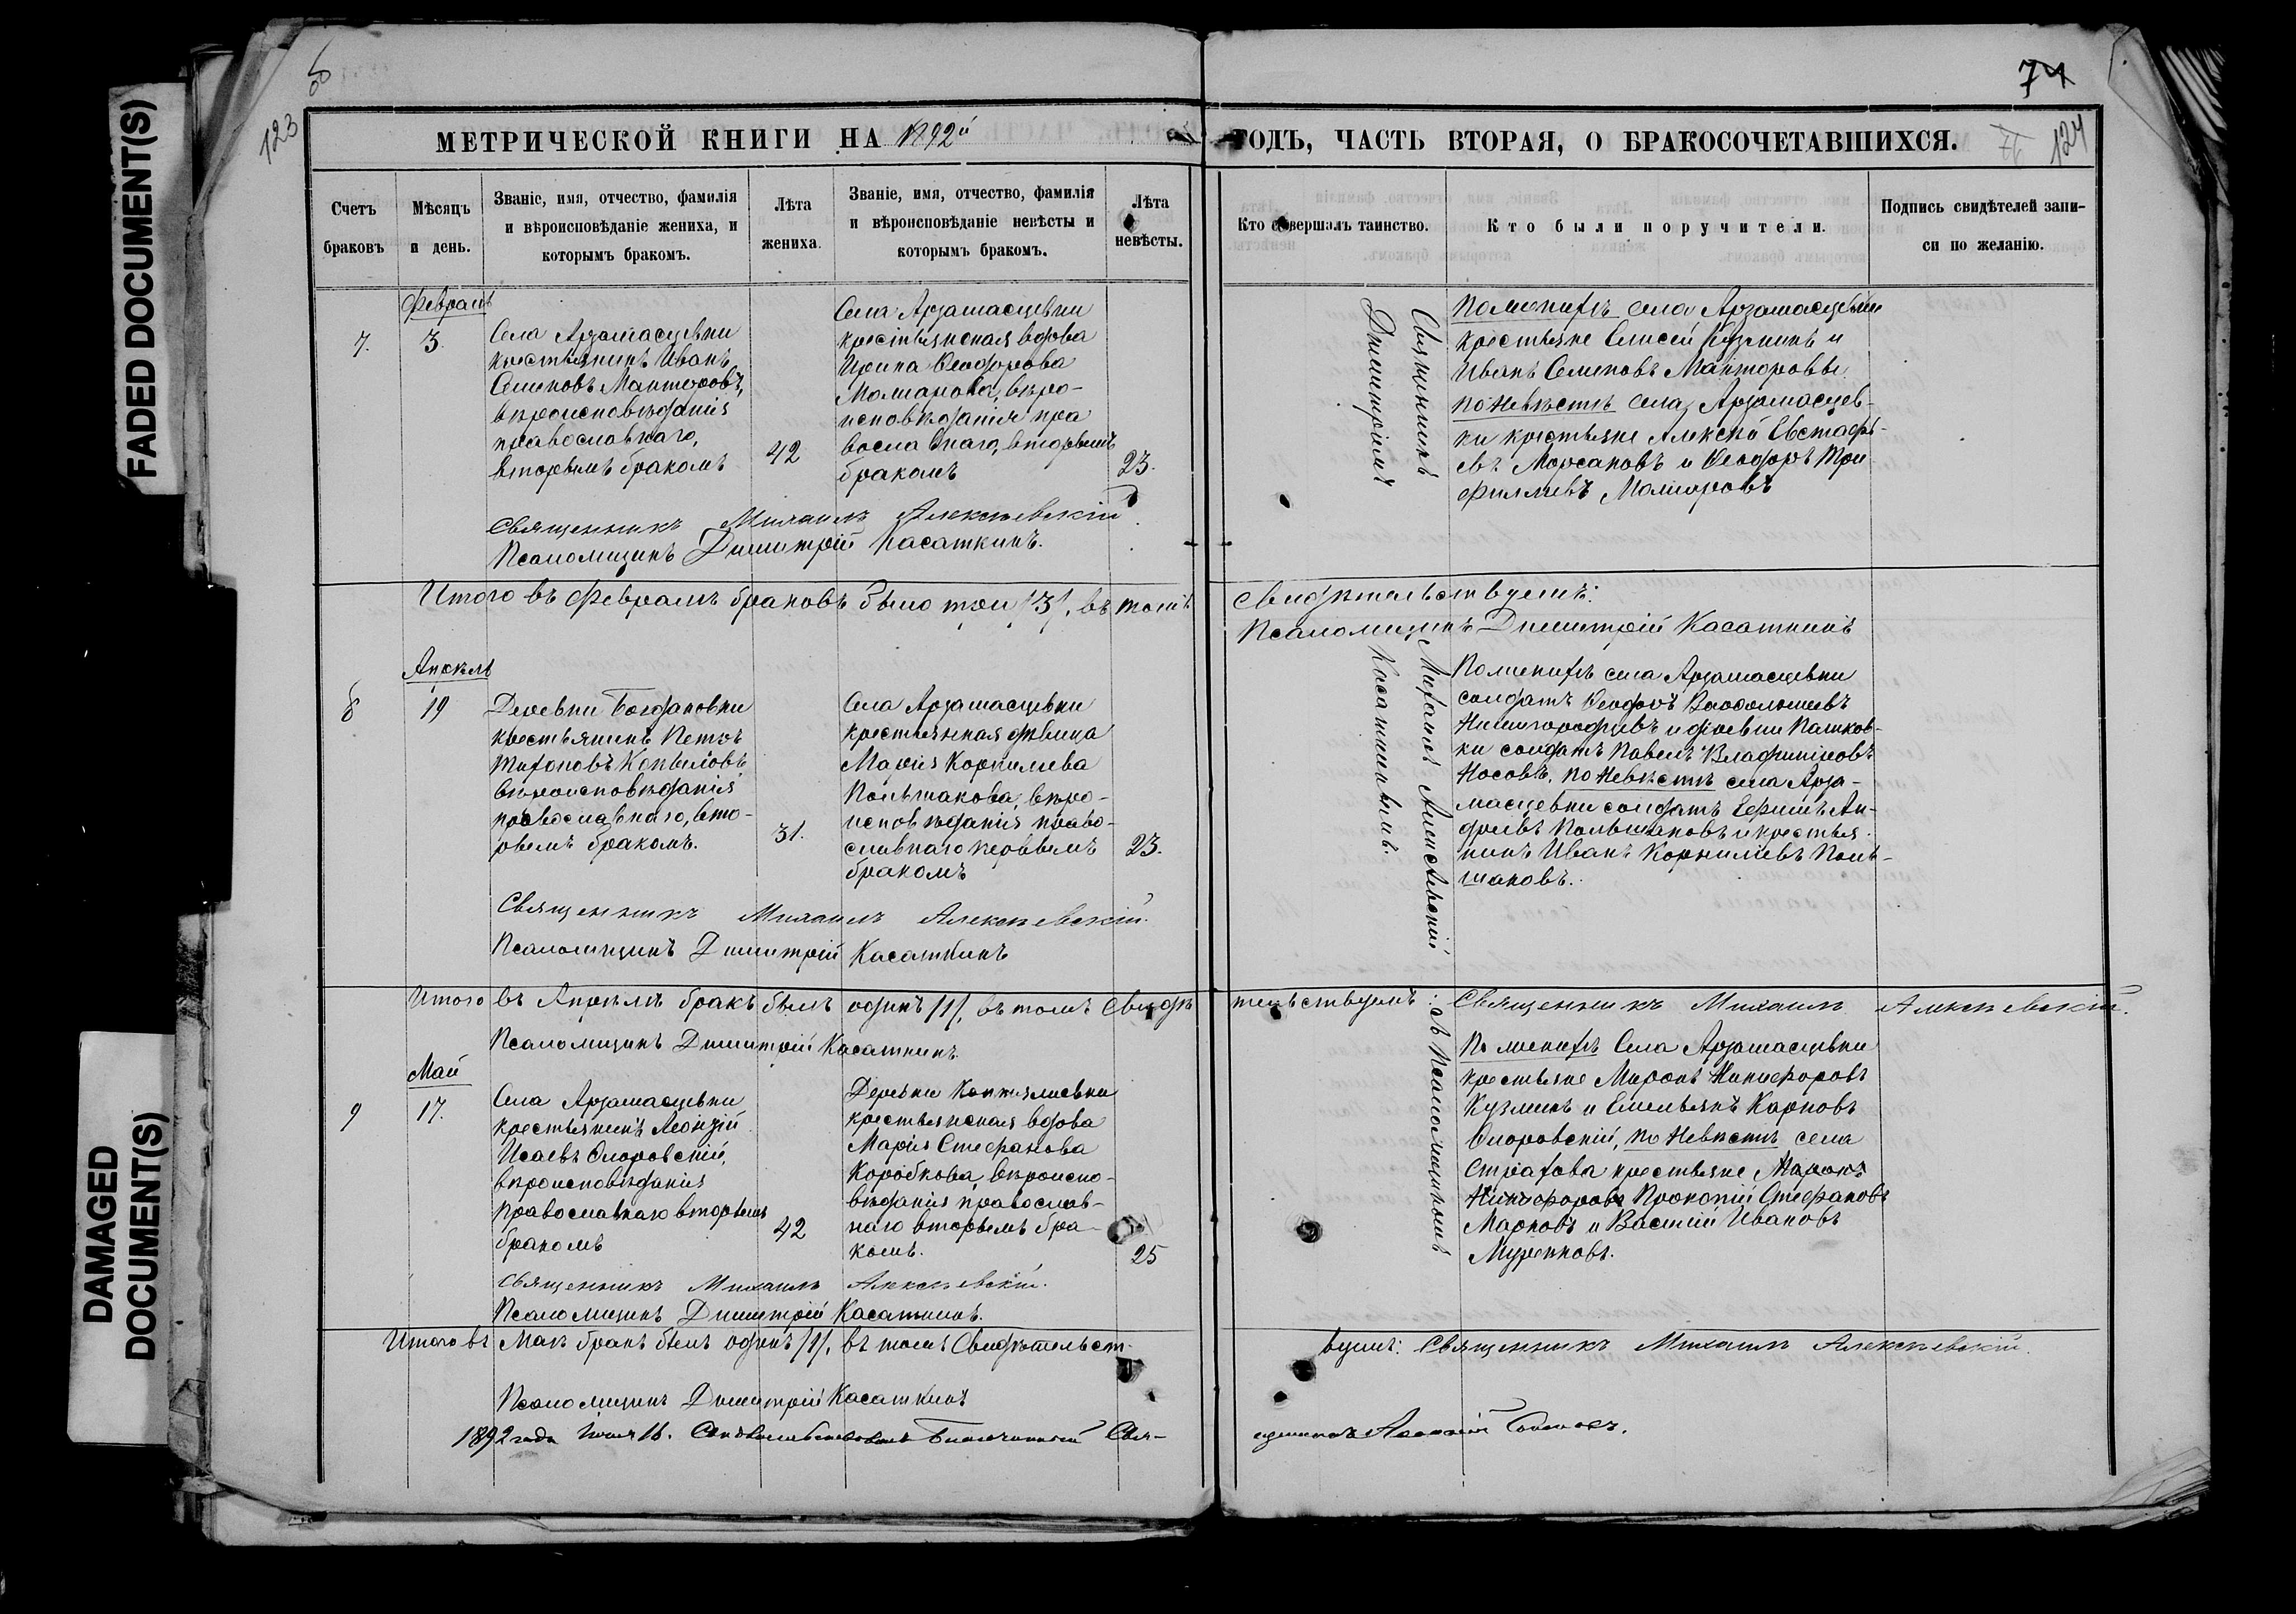 FADED DOCUMENT(S)
DAMAGED
DOCUMENT(S)
123
74
124
МЕТРИЧЕСКОЙ КНИГИ НА 1892й
ГОДЪ, ЧАСТЬ ВТОРАЯ, О БРАКОСОЧЕТАВШИХСЯ.
Счетъ
браковъ
Мѣсяцъ
и день.
Званіе, имя, отчество, фамилія
и вѣроисповѣданіе жениха, и
которымъ бракомъ.
Лѣта
жениха.
Званіе, имя, отчество, фамилія
и вѣроисповѣданіе невѣсты и
которымъ бракомъ.
Лѣта
невѣсты.
Кто совершалъ таинство.
Кто были поручители.
Подпись свидѣтелей запи-
си по желанію.
Февраль
7.
3.
Села Арзамасцевки
крестьянинъ Иванъ
Семеновъ Манторовъ,
вѣроисповѣданія
православнаго,
вторымъ бракомъ
42
Села Арзамасцевки
крестьянская вдова
Ирина Ѳеодорова
вѣро-
исповѣданія пра
вославнаго, вторымъ
бракомъ
23.
Священникъ
Димитріемъ
По женихѣ села Арзамасцевки
крестьяне Елисей Кузминъ и
Иванъ Семеновъ Манторовы
по невѣстѣ села Арзамасцев-
ки крестьяне Алексѣй Евстафі-
евъ и Ѳеодоръ Три
филліевъ
Священникъ Михаилъ Алексѣевскій
Псаломщикъ Димитрій Касаткинъ.
Итого въ Февралѣ браковъ было три /3/, въ томъ
свидѣтельствуемъ:
Псаломщикъ Димитрій Касаткинъ
Апрѣль
8
19
Деревни Богдановки
крестьянинъ Петръ
Тихоновъ Копыловъ
вѣроисповѣданія
православнаго, вто-
рымъ бракомъ.
31.
Села Арзамасцевки
крестьянская дѣвица
Марія Корнилиева
Польшакова, вѣро-
исповѣданія право-
славнаго первымъ
бракомъ
23.
Михаилъ Алексѣевскій
Касаткинымъ.
По женихѣ села Арзамасцевки
солдатъ Ѳеодоръ
Нижегородцевъ и деревни Пашков-
ки солдатъ Павелъ Владиміровъ
Носовъ, по невѣстѣ села Арза-
масцевки солдатъ Ефимъ Ан-
дреевъ Польшаковъ и крестья
нинъ Иванъ Корниліевъ Поль-
шаковъ.
Священникъ Михаилъ Алексѣевскій.
Псаломщикъ Димитрій Касаткинъ
Итого въ Апрѣлѣ бракъ былъ одинъ /1/, въ томъ свидѣ
тельствуемъ: Священникъ Михаилъ Алексѣевскій.
Псаломщикъ Димитрій Касаткинъ
Май
9
17.
Села Арзамасцевки
крестьянинъ Леонтій
Исаевъ Сморовскій,
вѣроисповѣданія
православнаго вторымъ
бракомъ
42
Деревни
крестьянская вдова
Марія Стефанова
Коробкова, вѣроиспо-
вѣданія православ-
наго вторымъ бра-
комъ.
25
съ Псаломщикомъ
По женихѣ Села Арзамасцевки
крестьяне Миронъ Никифоровъ
Кузминъ и Емельянъ Карповъ
Сморовскій, по невѣстѣ села
Страхова крестьяне
Прокопій Стефановъ
Марковъ и Василій Ивановъ
Священникъ Михаилъ Алексѣевскій.
Псаломщикъ Димитрій Касаткинъ.
Итого въ Маѣ бракъ былъ одинъ /1/, въ томъ Свидѣтельст-
вуемъ: Священникъ Михаилъ Алексѣевскій.
Псаломщикъ Димитрій Касаткинъ
1892 года 16. Свидѣтельствовалъ Благочинный Свя-
щенникъ